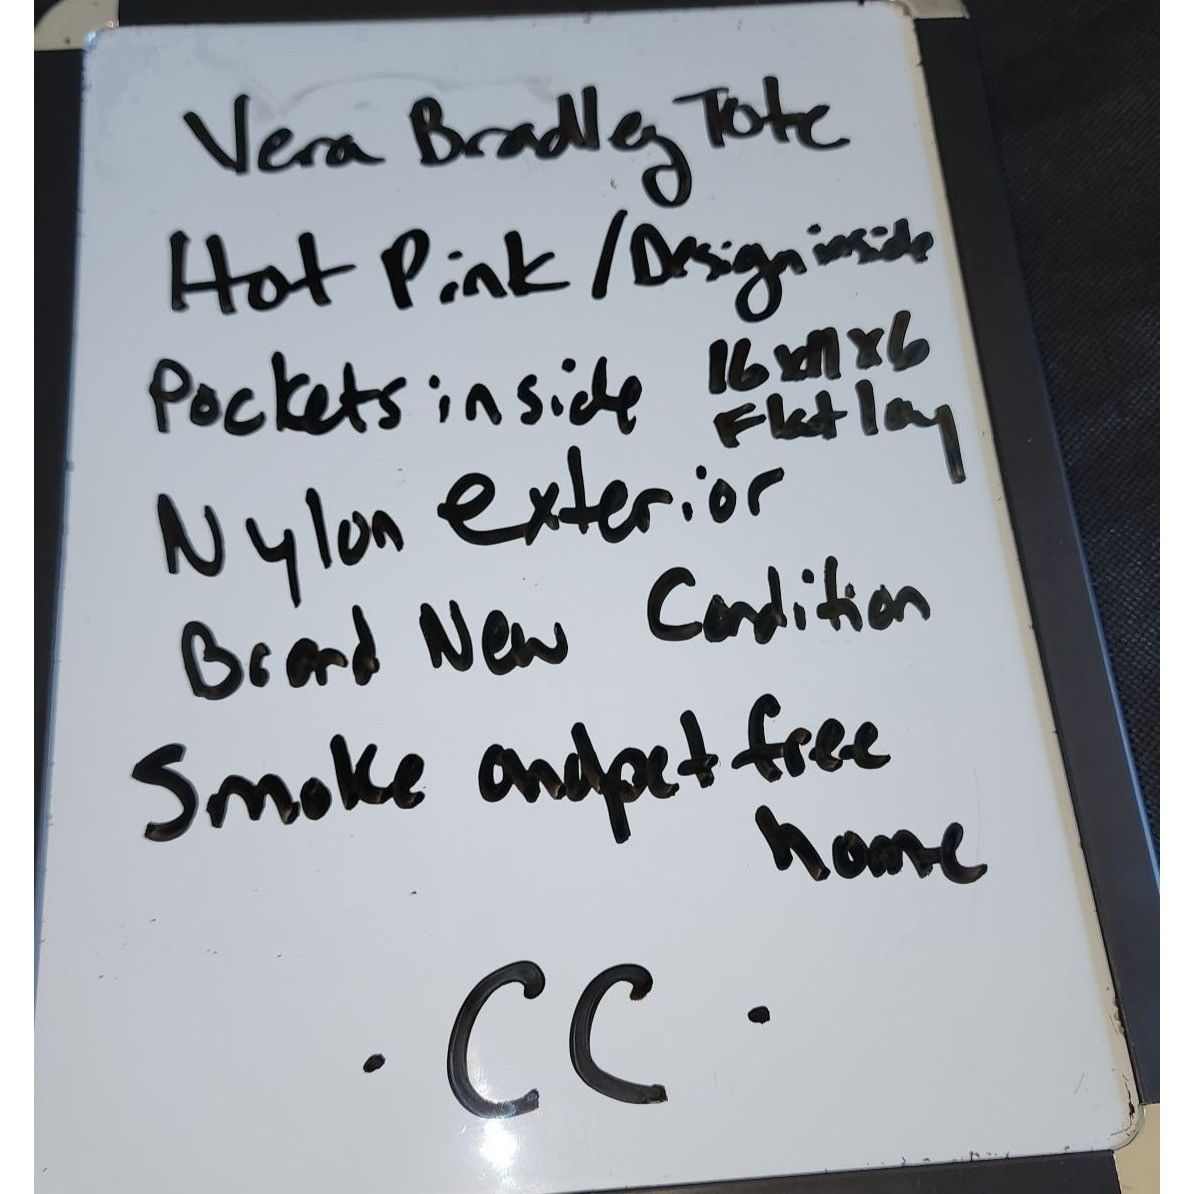 Vera Bradley Tote
Hot Pink / Design inside
Pockets inside 16x11x6
Flat lay
Nylon exterior
Brand New Condition
Smoke and pet free
home
. CC .